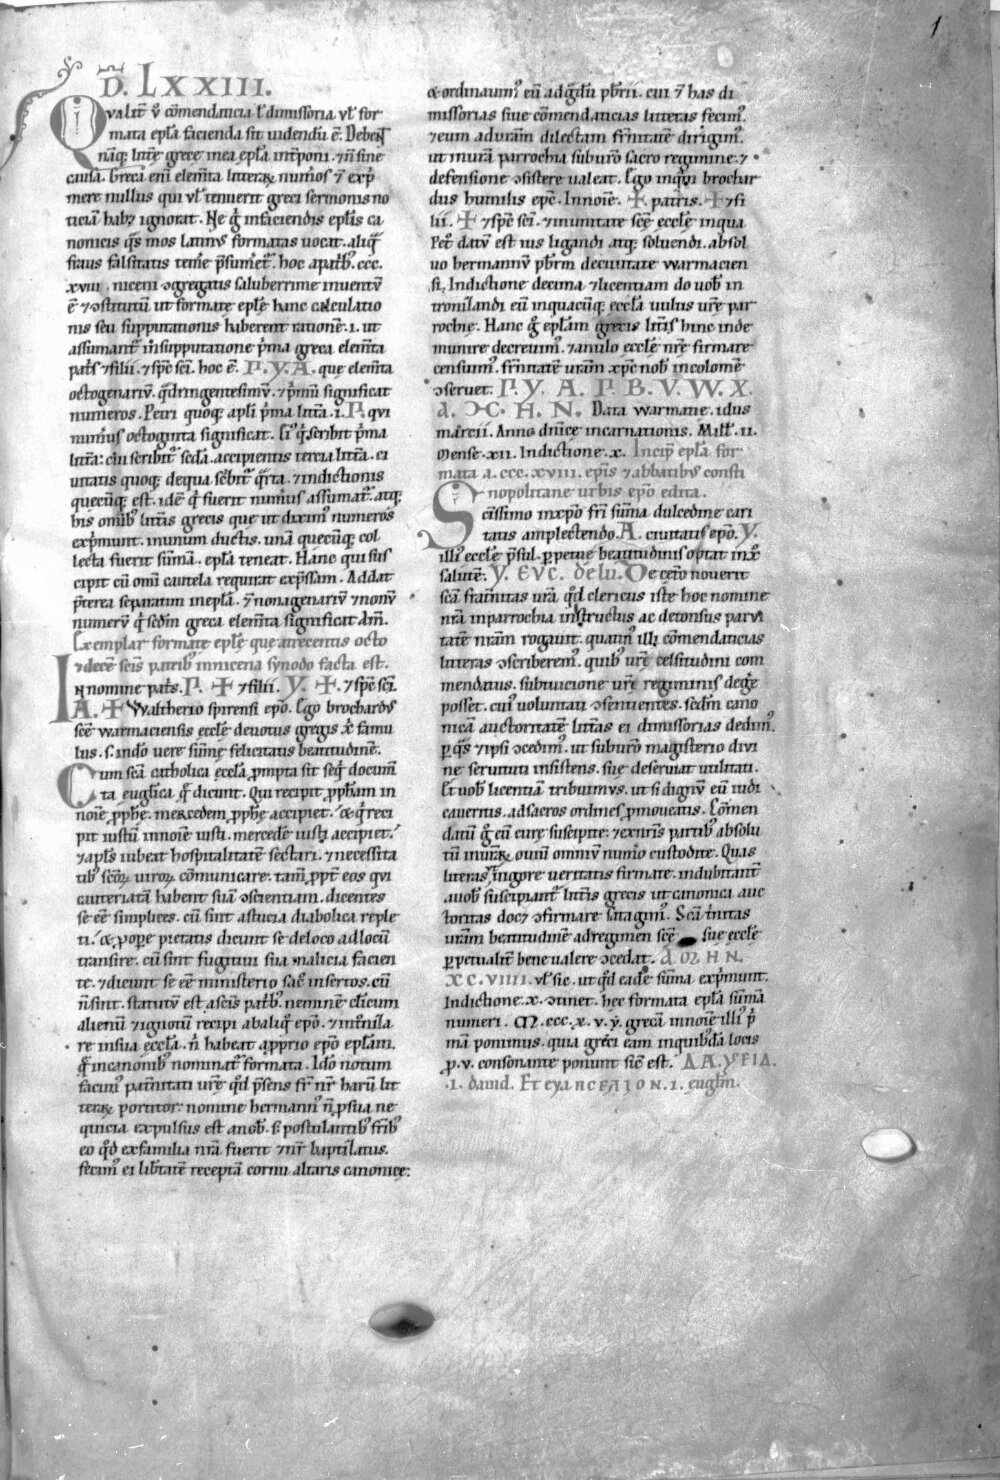 1
D̄. LXXIII.
Qualit̄ ū cōmendaticia ł dimissoria vł for
mata epła facienda sit uidendū ē. Debent
nāq; litt̄e grece in ea epła int̄poni. ⁊ n̄ sine
causa. Greca enī elem̄ta litteraꝝ num̄os ⁊ exp̄
mere nullus qui vł tenuerit greci sermonis no
ticiā habꝫ ignorat. Ne g̊ in faciendis epłis ca
nonicis q̄s mos latin᷒ formatas uocat. aliq̄
fraus falsitatis tem̄e p̄sumeret᷑. hoc a patrib; ccc.
xviii. niceni ɔgregatis saluberrime inuentū
ē ⁊ ɔstitutū ut formate epłę hanc calculatio
nis seu supputationis haberent rationē. i. ut
assumant᷑ in supputatione p̄ma greca elem̄ta
pat̄s ⁊ filii. ⁊ sp̄c sc̄i. hoc ē. Π. Υ. Α. que elem̄ta
octogenariū. q̄dringentesimū. ⁊ p̄mū significat
numeros. Petri quoq; apłi p̄ma litt̄a. i. Π. qui
num̄us octoginta significat. Ei᷒ q̄ scribit p̄ma
litt̄a: cui scribit᷑ sedā. accipientis tercia litt̄a. ci
uitatis quoq; de qua sc̄bit᷑ q̄rta. ⁊ indictionis
quecūq; est. idē q̄ fuerit num̄us assumat᷑. atq;
his omīb; litt̄is grecis que ut dixim᷒ numeros
exp̄munt. in unum ductis. unā quecūq; col
lecta fuerit sūmā. epła teneat. Hanc qui sus
cipit cū omī cautela requirat exp̄ssam. Addat
p̄terea separatim in epła. ⁊ nonagenariū ⁊ nonū
numerū q̄ sc̄dm greca elem̄ta significat am̄.
Exemplar formate epłę que a trecentis octo
⁊ decē sc̄is patrib; in nicena synodo facta est.
In nomine pat̄s. Π. ✠ ⁊ filii. Υ. ✠. ⁊ sp̄c sc̄i.
Α. ✠ Waltherio spirensi epo. Ego brochard᷒
sc̄e warmaciensis eccłę deuotus gregis x̄p̄i famu
lus. S. in dn̄o uere sūmę felicitatis beatitudinē.
Cum sc̄ā catholica eccła prompta sit seq̄ documt̄
ta euglica q̄ dicunt. Qui recipit p̄pham in
noīe p̄phę. mercedem p̄phę accipiet. & q̄ reci
pit iustū in noīe iusti. mercedē iusti accipiet.
⁊ apłs iubeat hospitalitatē sectari. ⁊ necessita
tib; sc̄oꝝ uiroꝝ cōmunicare. tam̄ p̄pt̄ eos qui
cauteriatā habent suā ɔscientiam. dicentes
se eē simplices. cū sint astucia diabolica reple
ti. & pro ope pietatis dicunt se de loco ad locū
transire. cū sint fugitiui sua malicia facien
te. ⁊ dicunt se eē ministerio sac̄ insertos. cū
n̄ sint. statutū est a sc̄is patb;. neminē cłicum
alienū ⁊ ignotū recipi ab aliq̄ epō. ⁊ int̄itila
re in sua eccła. n̄ habeat a prio epō epłam.
q̄ in canonib; nominat᷑ formata. Ido notum
facim᷒ pat̄nitati ur̄ę qd p̄sens fr̄ nr̄ harū lit
teraꝝ portitor. nomine hermann᷒ n̄ p sua ne
quicia expulsus est a nob. s; postulantib; fr̄ib;
eo q̊d ex familia nr̄a fuerit ⁊ nr̄ baptizatus.
fecim᷒ ei lib̄tatē receptā cornu altaris canonicę:
& ordinauim᷒ eū ad g̊dū pb̄rii. cui ⁊ has di
missorias siue cōmendaticias litteras fecim᷒.
⁊ eum ad ur̄am dilectam fr̄nitatē dirigim᷒.
ut in ur̄a parrochia sub ur̄o sacro regimine. ⁊
defensione ɔsistere ualeat. Ego inq̄ brochar
dus humilis epc̄. In noīe. ✠ patris. ✠ ⁊ fi
lii. ✠ ⁊ sp̄c sc̄i. ⁊ in unitate sc̄ę eccłę in qua
Pet̄ datū est ius ligandi atq; soluendi. absol
uo hermannū pb̄rm de ciuitate warmacien
si. Indictione decima ⁊ licentiam do uob in
tronizandi eū in quacūq; eccła uultis ur̄e par
rochię. Hanc g̊ epłam grecis litt̄is hinc inde
munire decreuim᷒. ⁊ anulo eccłę nr̄e firmare
censuim᷒. fr̄nitatē ur̄am x̄p̄c nob incolomē
ɔseruet. Π. Υ. Α. Π. B. V. W. X.
α. ƆC. H. N. Data warmatie. idus
marcii. Anno dn̄ice incarnationis. Mill. ii.
Mense. xii. Indictione. x. Incip̄ epła for
mata a. ccc. xviii. ep̄is ⁊ abbatib᷒ consti
nopolitane urbis ep̄o edita.
Scissimo in x̄p̄o fr̄i sūma dulcedine cari
tatis amplectendo. A. ciuitatis ep̄o. Υ.
illi᷒ eccłę p̄sul. perpetuę beatitudinis optat in x̄p̄o
salutē. Υ. ЄVC. De cet̄o nouerit
sc̄ā fr̄ainitas ur̄a. qd clericus iste hoc nomine
nr̄a in parrochia instructus ac detonsus parui
tatē nr̄am rogauit. quatin᷒ illi cōmendaticias
litteras ɔscriberem᷒. quib; ur̄ę celsitudini com
mendatus. sub tuicione ur̄ę regiminis dege
posset. cui᷒ uoluntati ɔsentientes. sc̄dm cano
nicā auctoritatē litt̄as ei dimissorias dedim᷒.
p q̄s ⁊ ipsi ɔcedim᷒. ut sub ur̄o magisterio diui
ne seruituti insistens. suę deseruiat utilitati.
Et uob licentiā tribuim᷒. ut si dignū eū iudi
caueritis. ad sacros ordines pmoueatis. Cōmen
datū g̊ eū curę suscipite: ⁊ ex nr̄is partib; absolu
tū in ur̄aꝝ ouiū omniū num̄o custodite. Quas
literas in gore ueritatis firmate. indubitant̄
a uob suscipiant᷑ litt̄is grecis ut canonica auc
toritas docꝫ ɔfirmare satagim᷒. Sc̄ā t̄initas
ur̄am beatitudinē ad regimen sc̄ę suę eccłę
p̄petualit̄ bene ualere ɔcedat. Α Μ Η Ν.
XC. VIIII. vł sic. ut qd eadē sūma exp̄munt.
Indictione. x. ɔtinet. hec formata epła sūmā
numeri. M. ccc. x. v. ẏ. grecā in noīe illi᷒ p̄
mā ponimus. quia greci eam in quib᷒dā locis
p. v. consonante ponunt sic̄ est. ΔΑΥΕΙΔ.
.i. dauid. Et eya ΠCЄΛΙΟΝ. i. euglm.